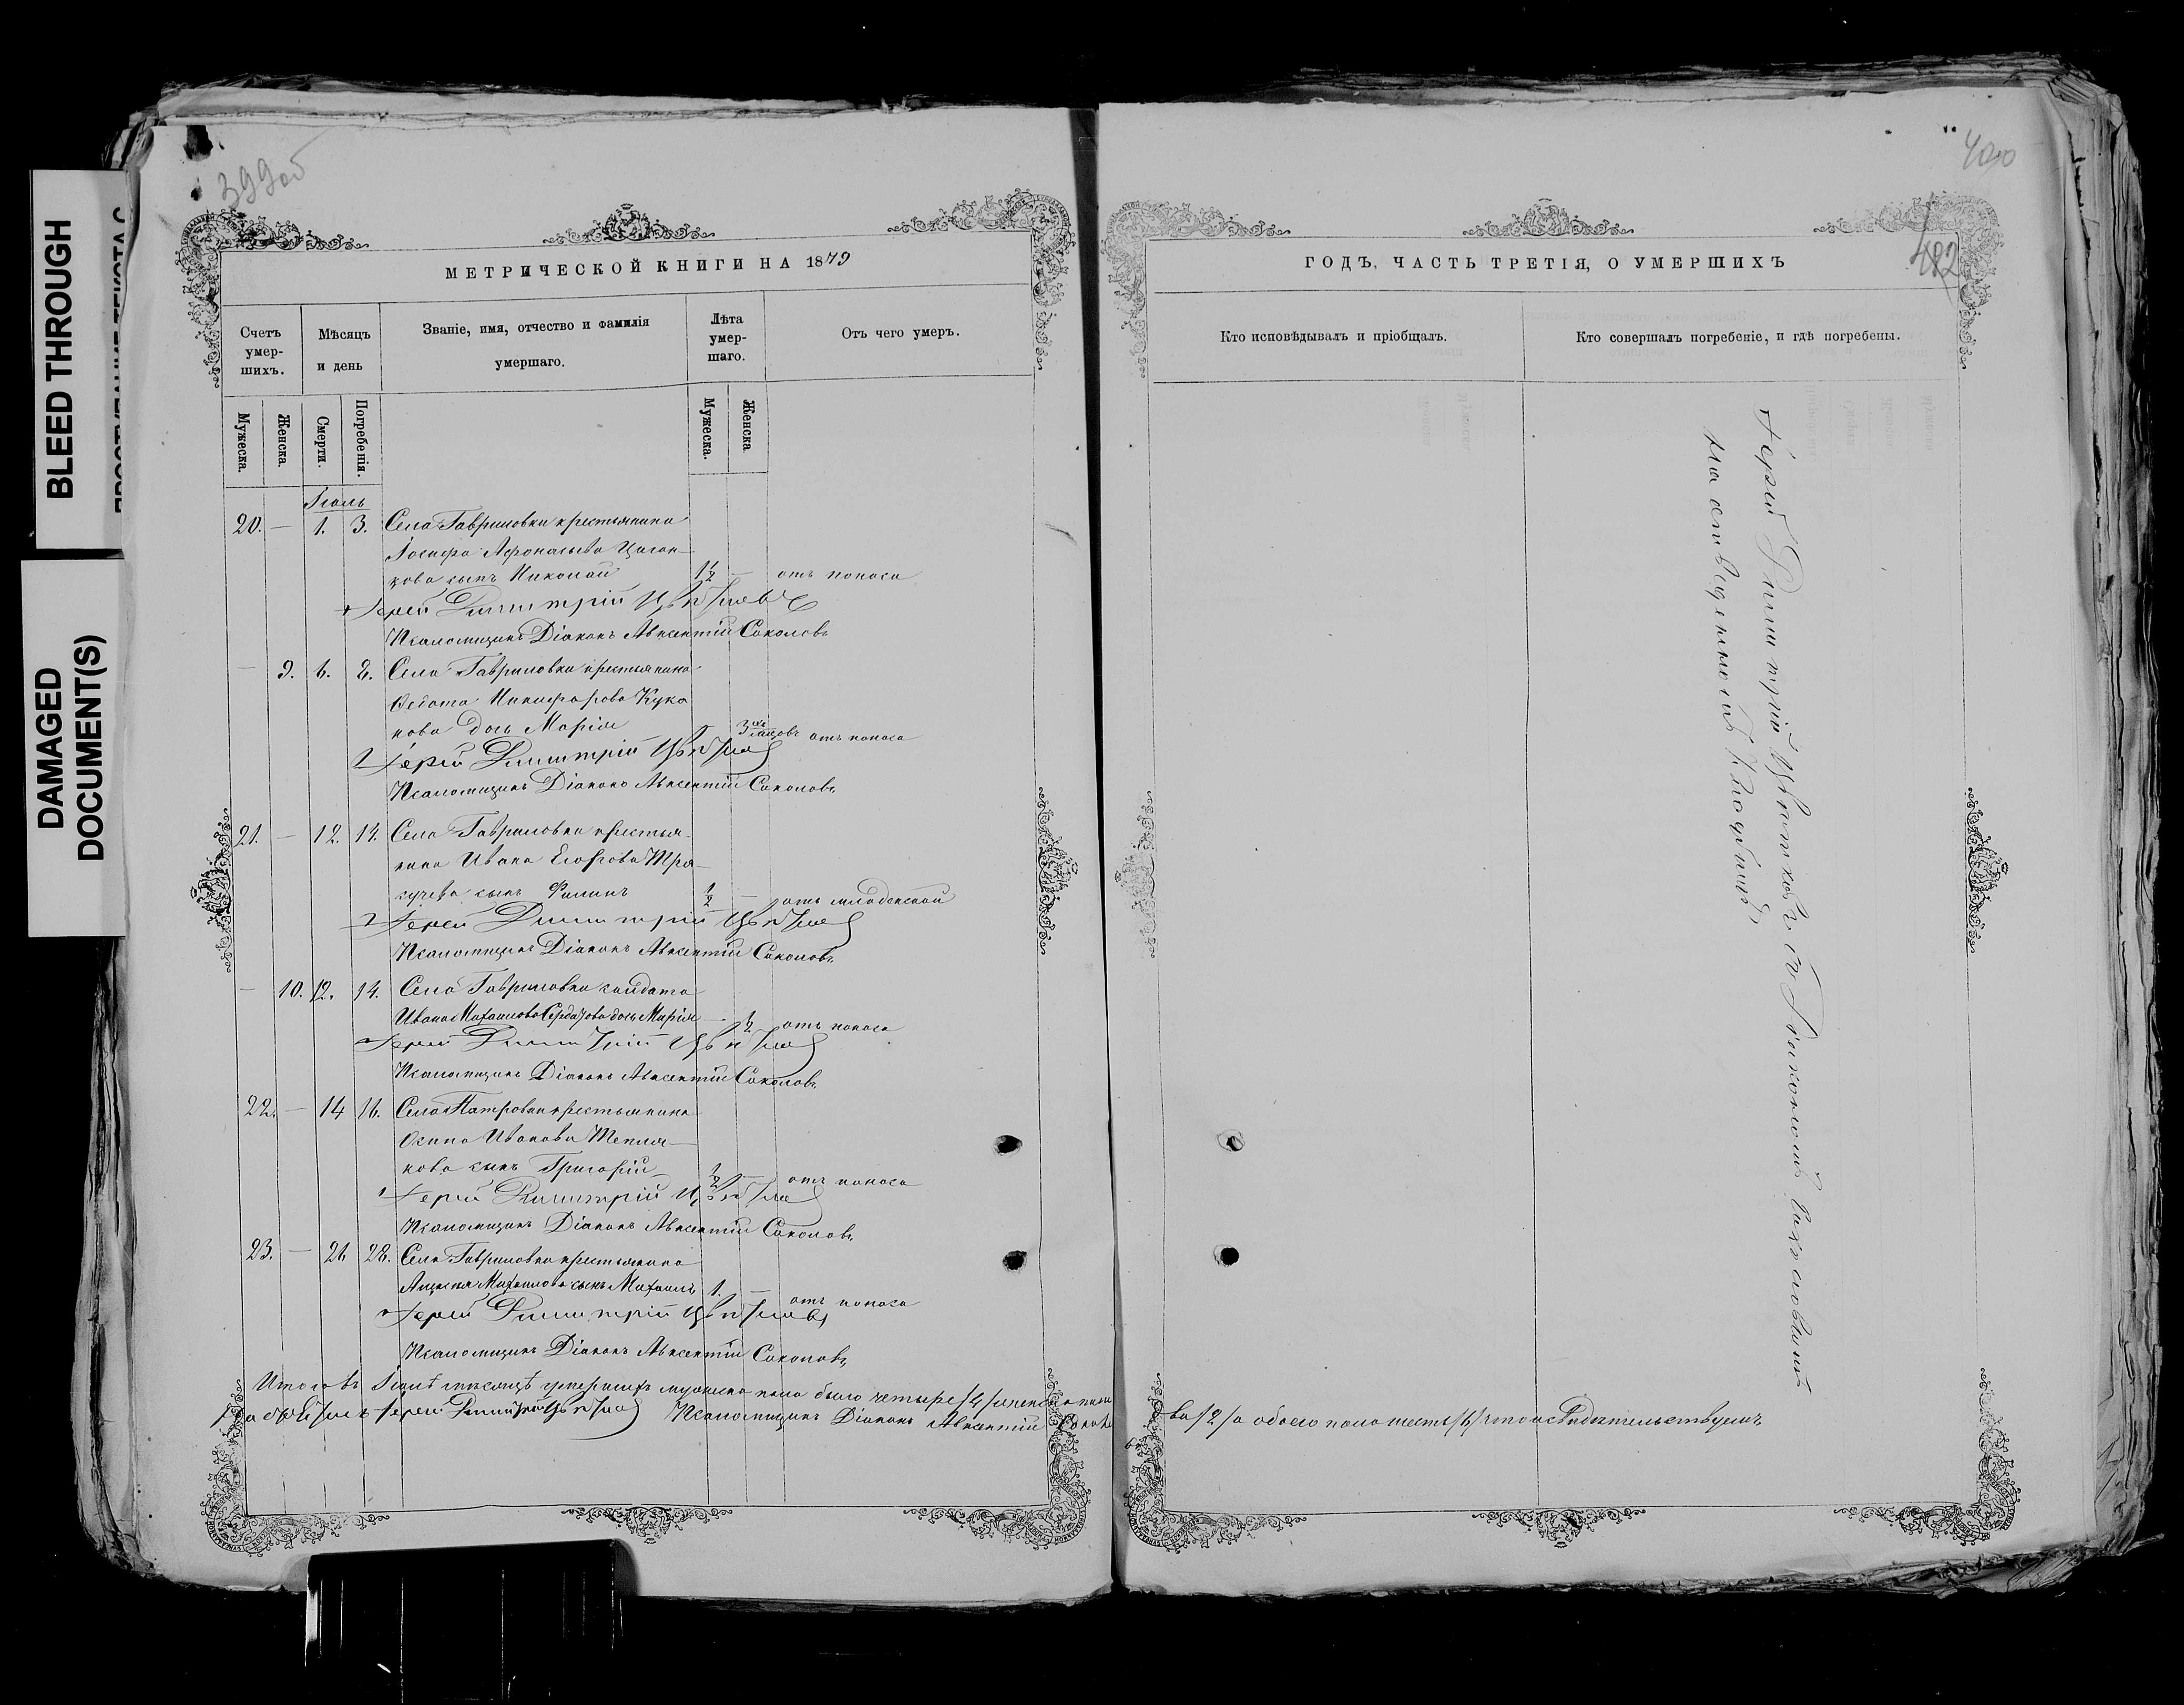 BLEED THROUGH
DAMAGED
DOCUMENT(S)
399об
МЕТРИЧЕСКОЙ КНИГИ НА 1879
Счетъ умер-шихъ.
Мѣсяцъ и день
Званіе, имя, отчество и фамилія умершаго.
Лѣта умер-шаго.
Отъ чего умеръ.
Мужеска.
Женска.
Смерти.
Погребенія.
Мужеска.
Женска
Іюль
20. — 1. 3. Села Гавриловки крестьянина
Іосифа Афонасьева Циган-
кова сынъ Николай 1 1/2 — отъ поноса
Іерей Димитрій Цвѣтковъ
Псаломщикъ Діаконъ Авксентій Соколовъ
— 9. 6. 8. Села Гавриловки крестьянина
Федота Никифорова Кука
нова дочь Марія 3 отъ поноса
Іерей Димитрій Цвѣтковъ
Псаломщикъ Діаконъ Авксентій Соколовъ
21. — 12. 14. Села Гавриловки крестья-
нина Ивана Егорова Тря-
сучева сынъ Филипъ 1/2 — отъ младенской
Іерей Димитрій Цвѣтковъ
Псаломщикъ Діаконъ Авксентій Соколовъ
— 10. 12. 14. Села Гавриловки солдата
Ивана Михаилова дочь Марія 1/2 отъ поноса
Іерей Димитрій Цвѣтковъ
Псаломщикъ Діаконъ Авксентій Соколовъ
22. — 14 16. Села Петровки крестьянина
Осипа Иванова Тепля-
кова сынъ Григорій 1/2 — отъ поноса
Іерей Димитрій Цвѣтковъ
Псаломщикъ Діаконъ Авксентій Соколовъ
23. — 26 28. Села Гавриловки крестьянина
Алексея Михаилова сынъ Михаилъ 1. — отъ поноса
Іерей Димитрій Цвѣтковъ
Псаломщикъ Діаконъ Авксентій Соколовъ
Итого въ Іюлѣ месяцѣ умершихъ мужеска пола было четыре /4/ женска пола
Іерей Димитрій Цвѣтковъ Псаломщикъ Діаконъ Авксентій Соколовъ
400
482
ГОДЪ, ЧАСТЬ ТРЕТІЯ, О УМЕРШИХЪ
Кто исповѣдывалъ и пріобщалъ.
Кто совершалъ погребеніе, и гдѣ погребены.
Іерей Димитрій Цвѣтковъ съ Діакономъ Соколовымъ
на отведенномъ кладбищѣ
два /2/ а обоего пола шесть /6/ что и свидѣтельствуемъ